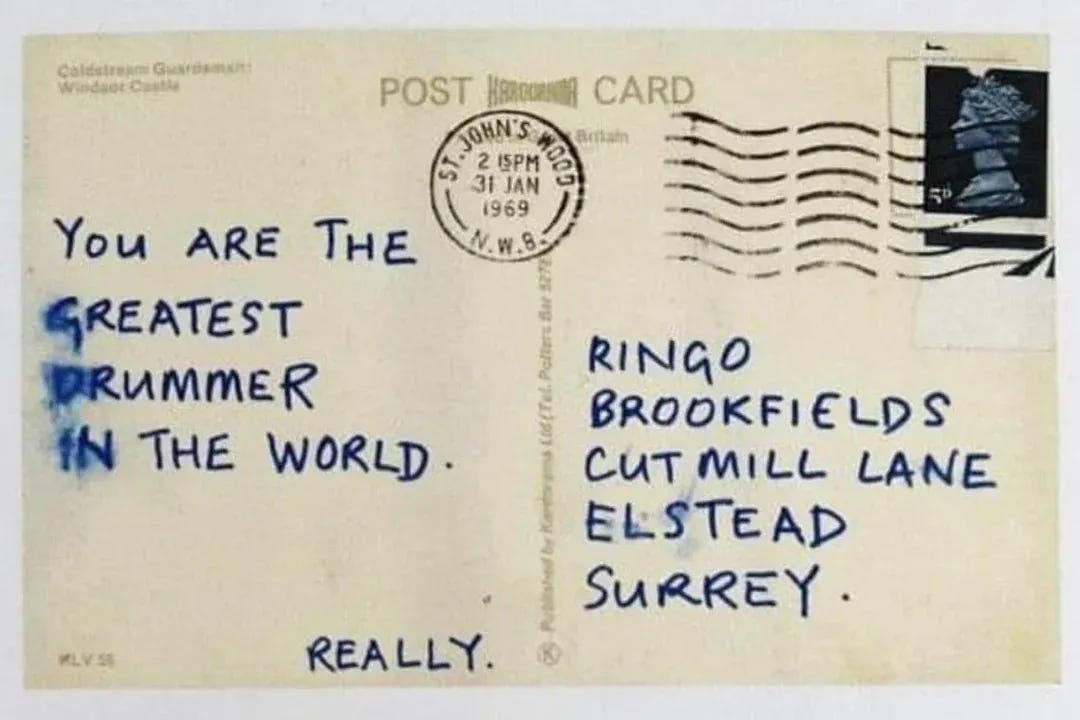 Coldstream Guardsman:
Windsor Castle
POST KARDORAMA CARD
Britain
ST. JOHN'S WOOD
2 15PM
31 JAN
1969
N.W.8.
5d
YOU ARE THE
GREATEST
DRUMMER
IN THE WORLD.
REALLY.
RINGO
BROOKFIELDS
CUT MILL LANE
ELSTEAD
SURREY.
Published by Kardorama Ltd (Tel. Potters Bar
K
KLV 55